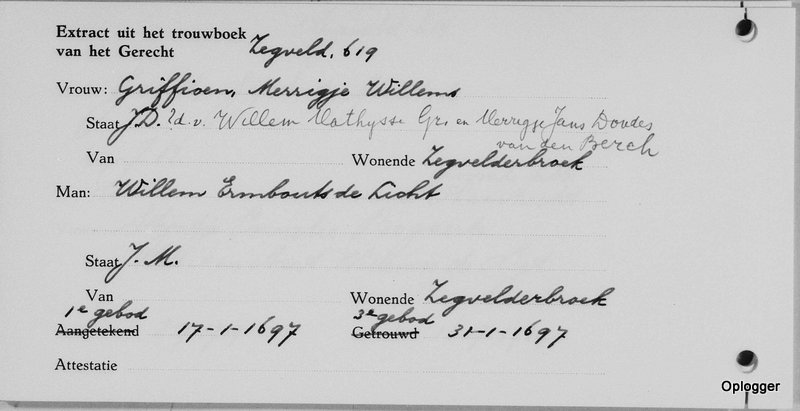 Extract uit het trouwboek
van het Gerecht Zegveld, 619
Vrouw: Griffioen, Merrigje Willems
Staat J.D. ?d.v. Willem Mathysse Gr. en Merrigje Jans Doudes
van den Berch
Van Wonende Zegvelderbroek
Man: Willem Ermbouts de Licht
Staat J.M.
Van Wonende Zegvelderbroek
1e gebod 3e gebod
Aangetekend 17-1-1697 Getrouwd 31-1-1697
Attestatie
Oplogger